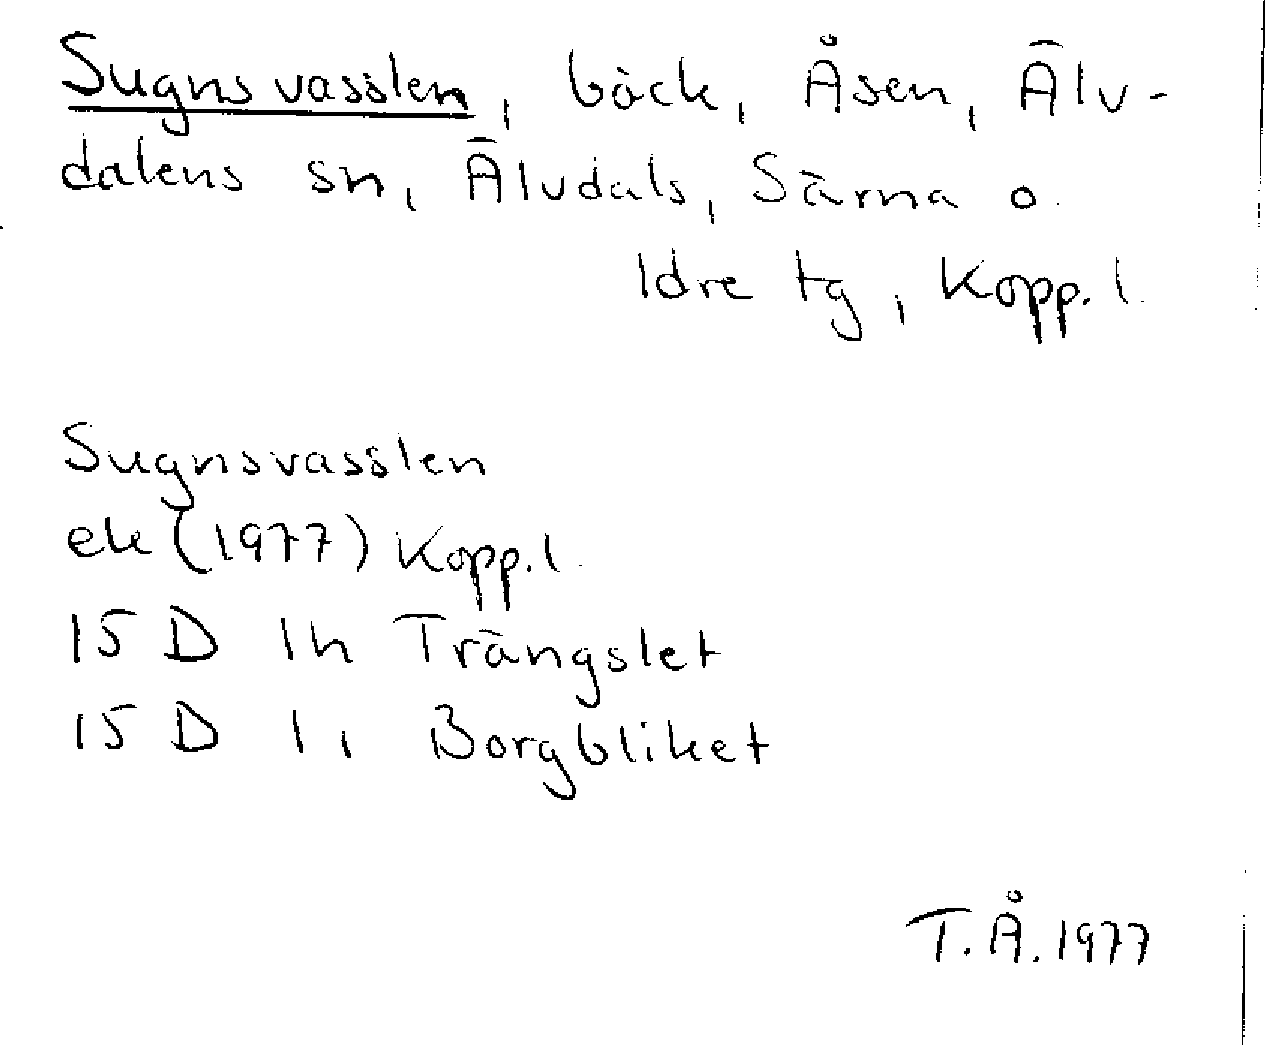 Sugnsvasslen, bäck, Åsen, Älv-
dalens sn, Älvdals, Särna o.
Idre tg, Kopp. l.
Sugnsvasslen
ek (1977) Kopp. l.
15 D 1h Trängslet
15 D 1i Borgbliket
T. Å. 1977